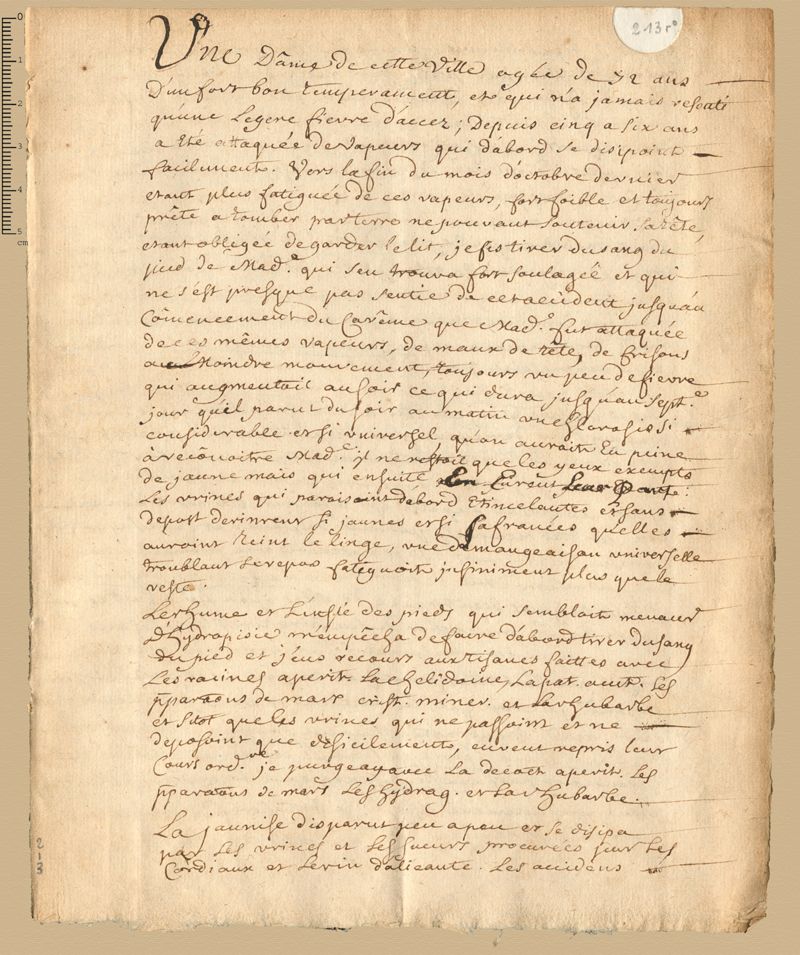 213 r°
Une Dâme de cette Ville agée de 72 ans
D'un fort bon temperament, et qui n'a jamais resenti
qu'une Legere fievre d'accez; Depuis cinq a six ans
a eté attaquée de vapeurs qui d'abord se disipoint
facilement. Vers la fin du mois d'octobre dernier
etant plus fatiguée de ces vapeurs, fort foible et toujours
prête a tomber par terre ne pouvant soutenir sa tête,
etant obligée de garder le lit, je fis tirer du sang du
pied de Mad.e qui s'en trouva fort soulagée et qui
ne s'est presque pas sentie de cet accident jusqu'au
Cômencement du Carême que Mad.e fut attaquée
de ces mêmes vapeurs, de maux de tête, de frisons
au Moindre mouvement, toujours un peu de fievre
qui augmentoit au soir ce qui dura jusqu'au sept.e
jour qu'il parut du soir au matin une Chlorosis si
considerable et si universel, qu'on auroit Eu peine
a recônoitre Mad.e il ne restoit que les yeux exempts
de jaune mais qui ensuite En Eurent Leur Part:
Les urines qui paroisoint d'abord Etincelantes et sans
depost devinrent si jaunes et si safranées qu'elles
auroint teint le linge, une demangeaison universelle
troublant le repos fatiguoit infiniment plus que le
reste.
Le rhume et L'enflé des pieds qui sembloit menacer
d'hydropisie m'empêcha de faire d'abord tirer du sang
du pied et j'eus recours aux tisanes faittes avec
Les racines aperit. La chelidoine, Lapat. acut. Les
pparaôns de mars crist. miner. et La rhubarbe
et sitot que les urines qui ne passoint et ne
deposoint que dificilement, eurent repris leur
Cours ord.re je purgeay avec La decoct. aperit. Les
pparaôns de mars Les hydrag. et La rhubarbe.
La jaunise disparut peu a peu et se disipa
par Les urines et Les sueurs procurées par Les
Cordiaux et Le vin d'alicante. Les accidens
213